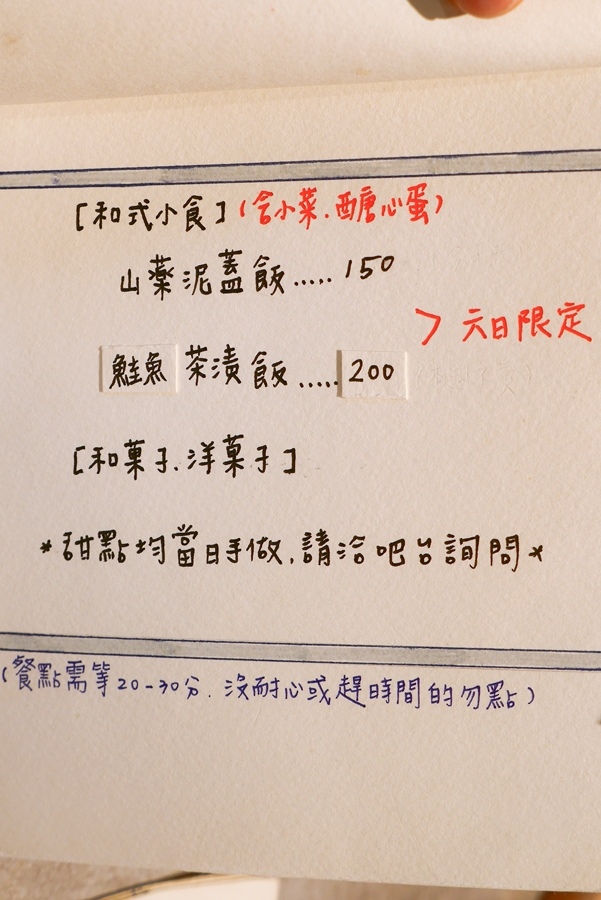 [和式小食](含小菜.醣心蛋)
山藥泥蓋飯.....150
> 六日限定
鮭魚茶漬飯.....200
[和菓子.洋菓子]
*甜點均當日手做,請洽吧台詢問*
(餐點需等20-30分.沒耐心或趕時間的勿點)